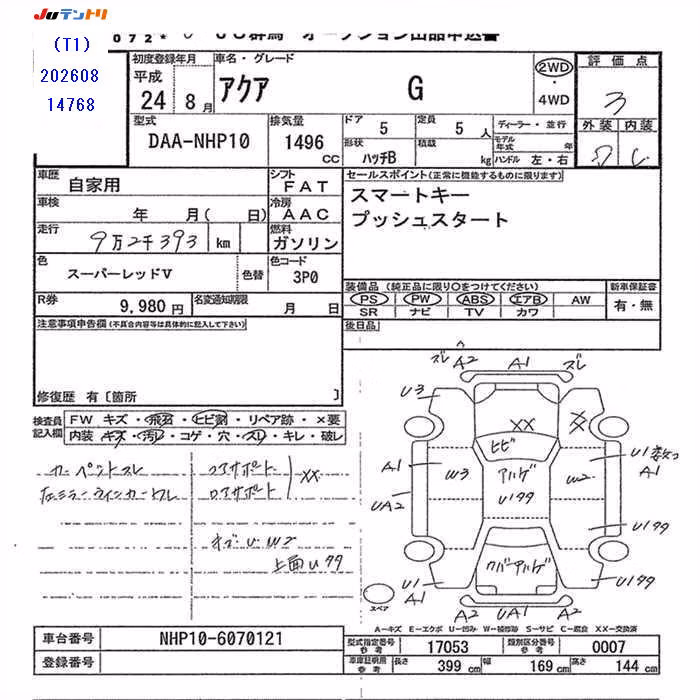 JUテントリ
072* JU群馬 オークション出品申込書
(T1)
202608
14768
初度登録年月
平成
24年 8月
車名・グレード
アクア G
2WD
・
4WD
評価点
3
外装 内装
型式
DAA-NHP10
排気量
1496 CC
ドア 5
定員 5 人
形状 ハッチB
積載 kg
ディーラー・並行
モデル年式 年
ハンドル 左・右
車歴 自家用
シフト FAT
車検 年 月( 日)
冷房 AAC
走行 9万2千393 km
燃料 ガソリン
色 スーパーレッドV 色替
色コード 3P0
R券 9,980円
名変通知期限 月 日
セールスポイント(正常に機能するものに限ります)
スマートキー
プッシュスタート
装備品(純正品に限り○をつけてください)
新車保証書
PS PW ABS エアB AW
有・無
SR ナビ TV カワ
後日品
注意事項申告欄(不具合内容等は具体的に記入して下さい)
修復歴 有〔箇所 〕
検査員記入欄
FW キズ・飛石・ヒビ割・リペア跡・×要
内装・キズ・汚レ・コゲ・穴・スレ・キレ・破レ
カーペントスレ
左ミラーウインカーカバーワレ
コアサポート
ロアサポート
XX
キズU・W2
上面Uササ
ズレ A2 A1 ズレ
U3
XX
XX
ヒビ
A1
W3
アルゲ
Uササ
W2
U1 数ヶ
A1
UA2
U1ササ
クバアルゲ
U1
A1
U1ササ
スペア
A2 UA1 A2
A=キズ E=エクボ U=凹み W=補修跡 S=サビ C=腐食 XX=交換済
車台番号 NHP10-6070121
登録番号
型式指定番号 参考 17053
類別区分番号 参考 0007
車庫証明用 参考 長さ 399 cm 幅 169 cm 高さ 144 cm